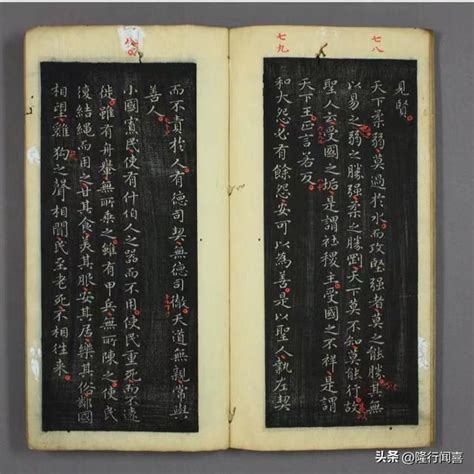 七八
七九
見賢
天下柔弱莫過於水而攻堅強者莫之能勝其無
以易之弱之勝强柔之勝剛天下莫不知莫能行故
聖人云受國之垢是謂社稷主受國之不祥是謂
天下王正言若反
和大怨必有餘怨安可以為善是以聖人執左契
八〇
而不責於人有德司契無德司徹天道無親常與
善人
小國寡民使有什伯人之器而不用使民重死而不遠
徙雖有舟轝無所乘之雖有甲兵無所陳之使民
復結繩而用之甘其食美其服安其居樂其俗鄰國
相望雞狗之聲相聞民至老死不相往来
头条 @隆行闻喜